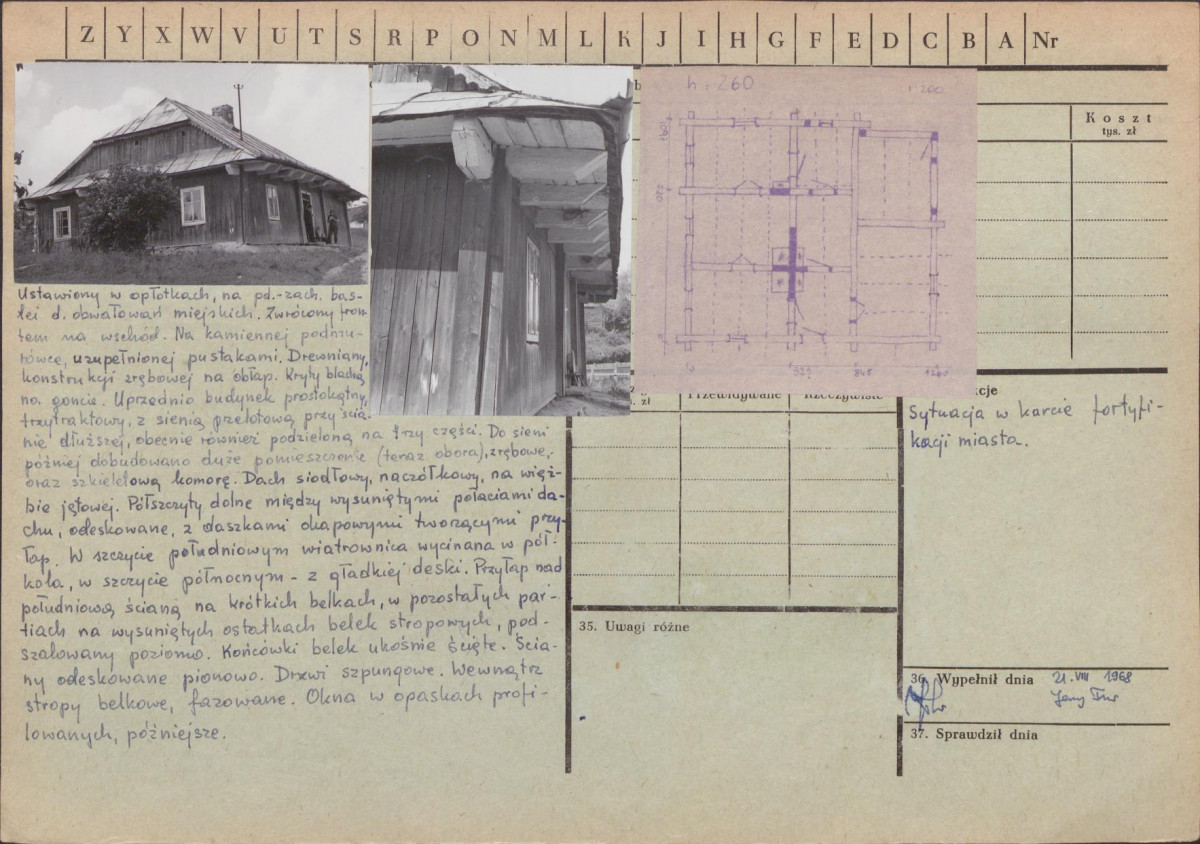 Z Y X W V U T S R P O N M L K J I H G F E D C B A Nr
h : 260
1:200
Koszt
tys. zł
520
845
Ustawiony w opłotkach, na pd.-zach. bas-
tei d. obwałowań miejskich. Zwrócony fron-
tem na wschód. Na kamiennej podmu-
rówce, uzupełnionej pustakami. Drewniany,
konstrukcji zrębowej na obłap. Kryty blachą
na goncie. Uprzednio budynek prostokątny,
trzytraktowy, z sienią przelotową przy ścia-
nie dłuższej, obecnie również podzieloną na trzy części. Do sieni
później dobudowano duże pomieszczenie (teraz obora), zrębowe,
oraz szkieletową komorę. Dach siodłowy, naczółkowy, na więź-
bie jętowej. Półszczyty dolne między wysuniętymi połaciami da-
chu, odeskowane, z daszkami okapowymi tworzącymi przy-
łap. W szczycie południowym wiatrownica wycinana w pół-
kola, w szczycie północnym - z gładkiej deski. Przyłap nad
południową ścianą na krótkich belkach, w pozostałych par-
tiach na wysuniętych ostatkach belek stropowych, pod-
szalowany poziomo. Końcówki belek ukośnie ścięte. Ścia-
ny odeskowane pionowo. Drzwi szpungowe. Wewnątrz
stropy belkowe, fazowane. Okna w opaskach profi-
lowanych, późniejsze.
zł
Przewidywane
Rzeczywiste
35. Uwagi różne
cje
Sytuacja w karcie fortyfi-
kacji miasta.
36. Wypełnił dnia 21.VIII 1968
37. Sprawdził dnia